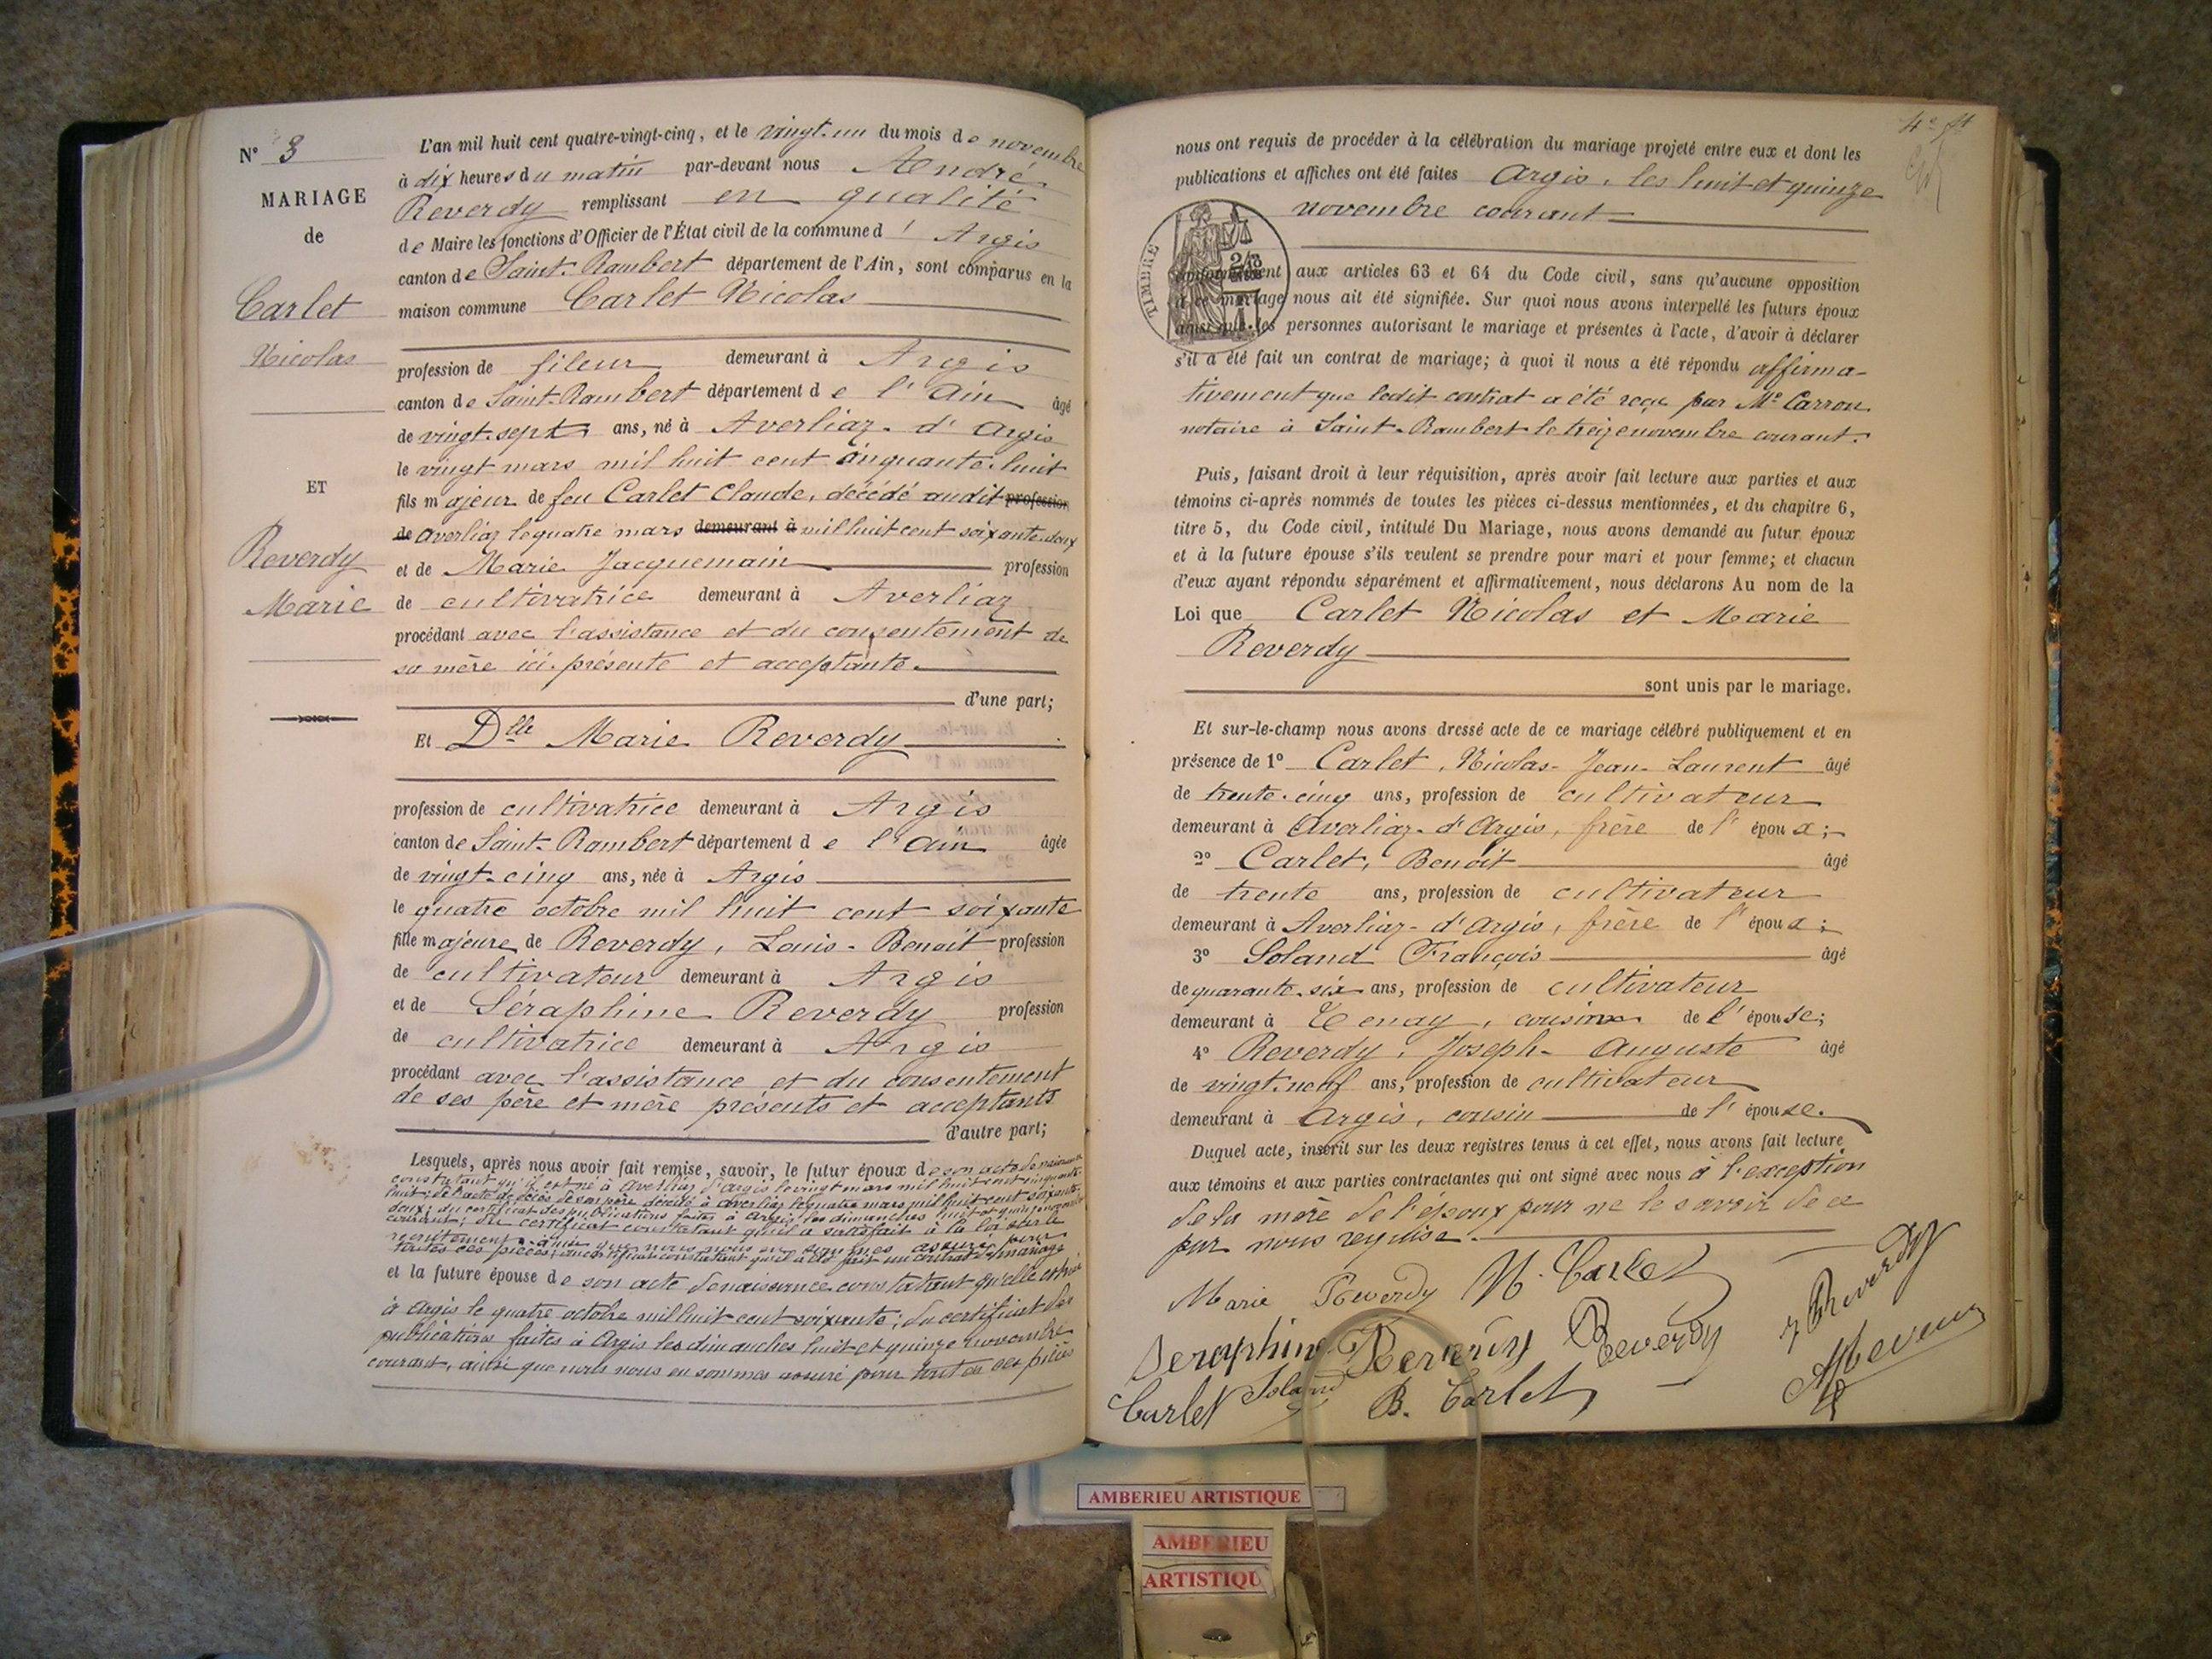 N° 3
MARIAGE
de
Carlet
Nicolas
ET
Reverdy
Marie
L'an mil huit cent quatre-vingt-cinq, et le vingt-un du mois de novembre
à dix heures du matin par-devant nous André
Reverdy remplissant en qualité
de Maire les fonctions d'Officier de l'État civil de la commune d' Argis
canton de Saint-Rambert département de l'Ain, sont comparus en la
maison commune Carlet Nicolas
profession de fileur demeurant à Argis
canton de Saint-Rambert département de l'Ain âgé
de vingt-sept ans, né à Averliaz-d'Argis
le vingt mars mil huit cent cinquante-huit
fils majeur de feu Carlet Claude, décédé audit profession
de Averliaz le quatre mars demeurant à mil huit cent soixante-deux
et de Marie Jacquemain profession
de cultivatrice demeurant à Averliaz
procédant avec l'assistance et du consentement de
sa mère ici présente et acceptante.
d'une part;
Et Dlle Marie Reverdy
profession de cultivatrice demeurant à Argis
canton de Saint-Rambert département de l'Ain âgée
de vingt-cinq ans, née à Argis
le quatre octobre mil huit cent soixante
fille majeure de Reverdy, Louis-Benoit profession
de cultivateur demeurant à Argis
et de Séraphine Reverdy profession
de cultivatrice demeurant à Argis
procédant avec l'assistance et du consentement
de ses père et mère présents et acceptants
d'autre part;
Lesquels, après nous avoir fait remise, savoir, le futur époux de son acte de naissance
constatant qu'il est né à Averliaz d'Argis le vingt mars mil huit cent cinquante-
huit; de l'acte de décès de son père décédé à Averliaz le quatre mars mil huit cent soixante-
deux; du certificat des publications faites à Argis les dimanches huit et quinze novembre
courant; du certificat constatant qu'il a satisfait à la loi sur le
recrutement; ainsi que nous nous en sommes assuré pour
toutes ces pièces; du certificat constatant qu'il a été fait un contrat de mariage
et la future épouse de son acte de naissance constatant qu'elle est née
à Argis le quatre octobre mil huit cent soixante; du certificat des
publications faites à Argis les dimanches huit et quinze novembre
courant, ainsi que nous nous en sommes assuré pour toutes ces pièces
nous ont requis de procéder à la célébration du mariage projeté entre eux et dont les
publications et affiches ont été faites Argis, les huit et quinze
novembre courant
TIMBRE
conformément aux articles 63 et 64 du Code civil, sans qu'aucune opposition
à ce mariage nous ait été signifiée. Sur quoi nous avons interpellé les futurs époux
ainsi que les personnes autorisant le mariage et présentes à l'acte, d'avoir à déclarer
s'il a été fait un contrat de mariage; à quoi il nous a été répondu affirma-
tivement que ledit contrat a été reçu par Me Carron
notaire à Saint-Rambert le treize novembre courant.
Puis, faisant droit à leur réquisition, après avoir fait lecture aux parties et aux
témoins ci-après nommés de toutes les pièces ci-dessus mentionnées, et du chapitre 6,
titre 5, du Code civil, intitulé Du Mariage, nous avons demandé au futur époux
et à la future épouse s'ils veulent se prendre pour mari et pour femme; et chacun
d'eux ayant répondu séparément et affirmativement, nous déclarons Au nom de la
Loi que Carlet Nicolas et Marie
Reverdy
sont unis par le mariage.
Et sur-le-champ nous avons dressé acte de ce mariage célébré publiquement et en
présence de 1° Carlet, Nicolas-Jean-Laurent âgé
de trente-cinq ans, profession de cultivateur
demeurant à Averliaz-d'Argis, frère de l'époux;
2° Carlet, Benoit âgé
de trente ans, profession de cultivateur
demeurant à Averliaz-d'Argis, frère de l'époux;
3° Soland François âgé
de quarante-six ans, profession de cultivateur
demeurant à Tenay, cousin de l'épouse;
4° Reverdy, Joseph-Auguste âgé
de vingt-neuf ans, profession de cultivateur
demeurant à Argis, cousin de l'épouse.
Duquel acte, inscrit sur les deux registres tenus à cet effet, nous avons fait lecture
aux témoins et aux parties contractantes qui ont signé avec nous à l'exception
de la mère de l'époux pour ne le savoir de ce
par nous requise.
Marie Reverdy N. Carlet
Seraphine Reverdy Reverdy J Reverdy
Carlet Soland B. Carlet
AMBERIEU ARTISTIQUE
AMBERIEU
ARTISTIQU